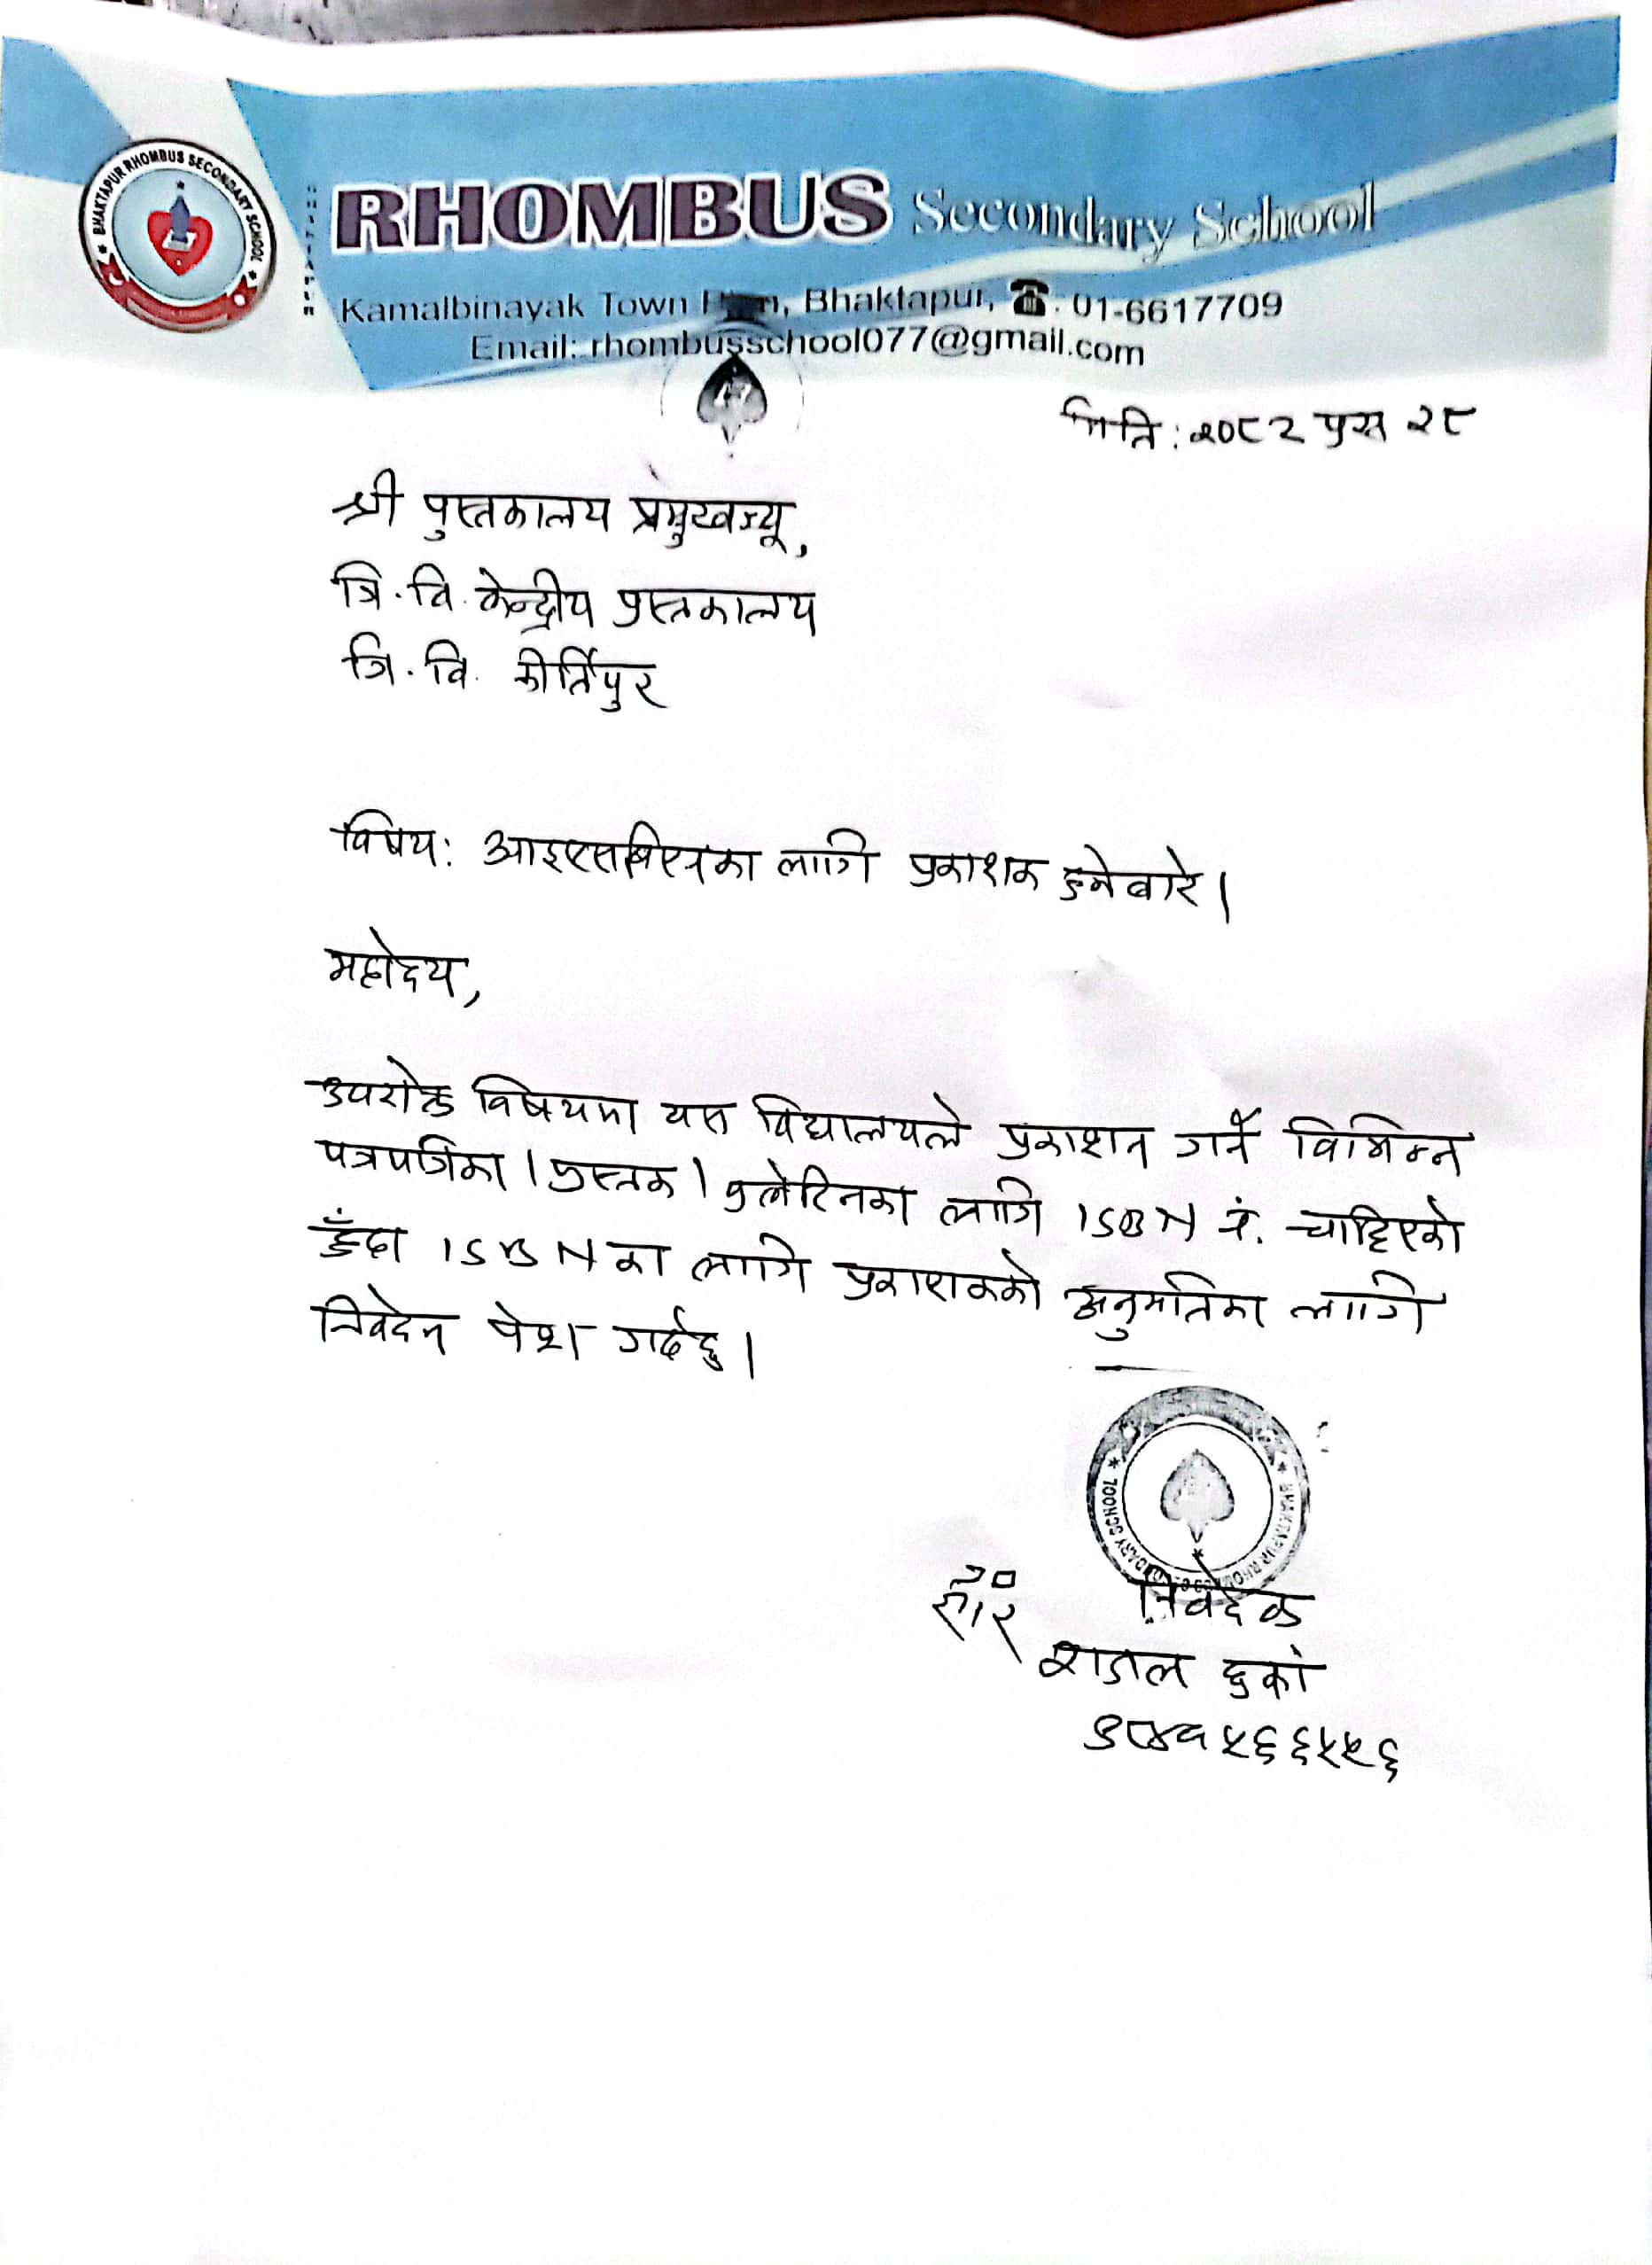 BHAKTAPUR RHOMBUS SECONDARY SCHOOL
RHOMBUS Secondary School
Kamalbinayak Town, Bhaktapur, ☎: 01-6617709
Email: rhombusschool077@gmail.com
मिति: २०८२ पुस २८
श्री पुस्तकालय प्रमुखज्यू,
त्रि. वि. केन्द्रीय पुस्तकालय
त्रि. वि. कीर्तिपुर
विषय: आइएसबिएनका लागि प्रकाशक हुनेबारे।
महोदय,
उपरोक्त विषयमा यस विद्यालयले प्रकाशन गर्ने विभिन्न
पत्रपत्रिका / पुस्तक / बुलेटिनका लागि ISBN नं. चाहिएको
हुँदा ISBN का लागि प्रकाशकको अनुमतिका लागि
निवेदन पेश गर्दछु।
BHAKTAPUR RHOMBUS SECONDARY SCHOOL
निवेदक